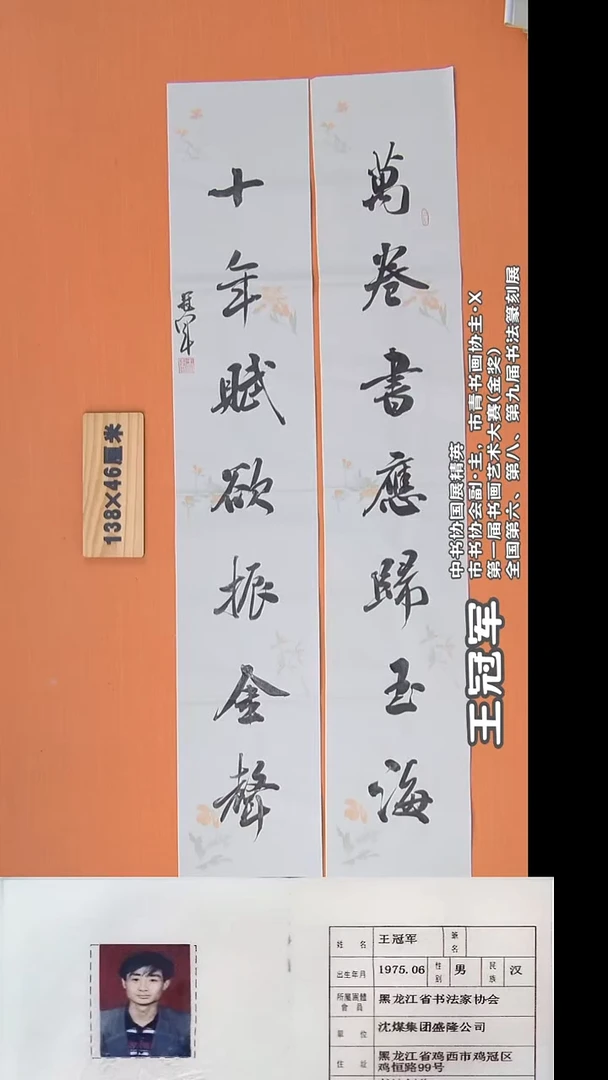 萬卷書應歸玉海
十年賦欲振金聲
冠軍
138×46厘米
中书协国展精英
市书协会副·主，市青书画协主·X
第一届书画艺术大赛(金奖)
全国第六、第八、第九届书法篆刻展
王冠军
姓 名 王冠军 筆名
出生年月 1975.06 性别 男 民族 汉
所屬團體會員 黑龙江省书法家协会
單 位 沈煤集团盛隆公司
住 址 黑龙江省鸡西市鸡冠区
鸡恒路99号